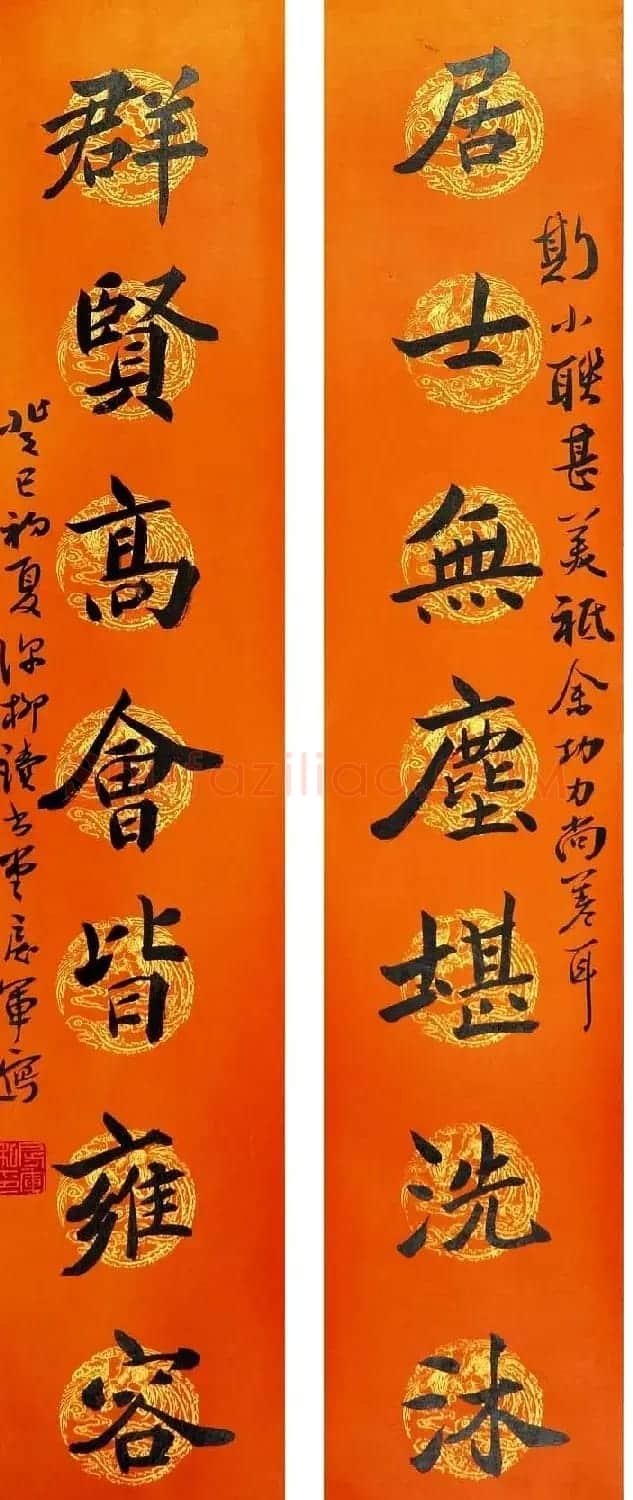 斯小聯甚美祗余功力尚差耳
居士無塵堪洗沐
群賢高會皆雍容
癸巳初夏深柳讀書堂房軍寫